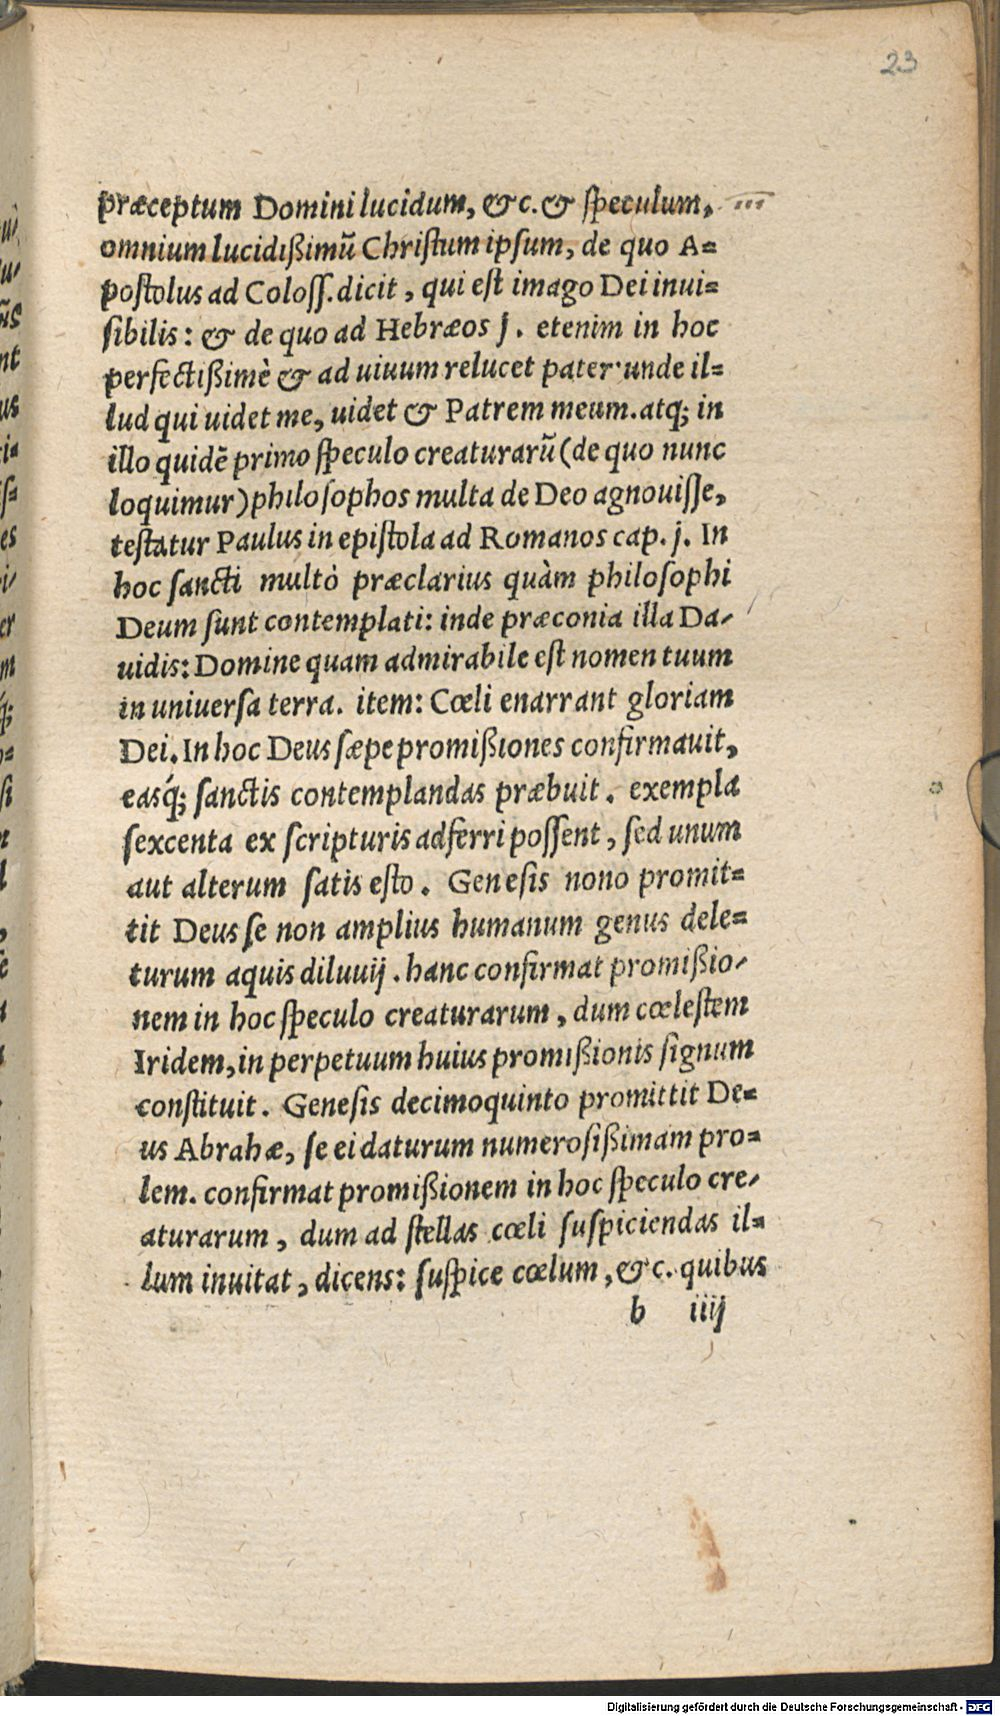 23
præceptum Domini lucidum, &c. & ſpeculum,
omnium lucidißimũ Chriſtum ipſum, de quo A=
poſtolus ad Coloſſ. dicit, qui eſt imago Dei inui=
ſibilis: & de quo ad Hebræos j. etenim in hoc
perfectißimè & ad uiuum relucet pater: unde il=
lud qui uidet me, uidet & Patrem meum. atq; in
illo quidẽ primo ſpeculo creaturarũ (de quo nunc
loquimur) philoſophos multa de Deo agnouiſſe,
teſtatur Paulus in epiſtola ad Romanos cap. j. In
hoc ſancti multò præclarius quàm philoſophi
Deum ſunt contemplati: inde præconia illa Da/
uidis: Domine quam admirabile eſt nomen tuum
in uniuerſa terra. item: Cœli enarrant gloriam
Dei. In hoc Deus ſæpe promißiones confirmauit,
easq́; ſanctis contemplandas præbuit. exempla
ſexcenta ex ſcripturis adferri poſſent, ſed unum
aut alterum ſatis eſto. Geneſis nono promit=
tit Deus ſe non amplius humanum genus dele=
turum aquis diluuij. hanc confirmat promißio/
nem in hoc ſpeculo creaturarum, dum cœleſtem
Iridem, in perpetuum huius promißionis ſignum
conſtituit. Geneſis decimoquinto promittit De=
us Abrahæ, ſe ei daturum numeroſißimam pro=
lem. confirmat promißionem in hoc ſpeculo cre/
aturarum, dum ad ſtellas cœli ſuſpiciendas il=
lum inuitat, dicens: ſuſpice cœlum, &c. quibus
b iiij
Digitalisierung gefördert durch die Deutsche Forschungsgemeinschaft - DFG